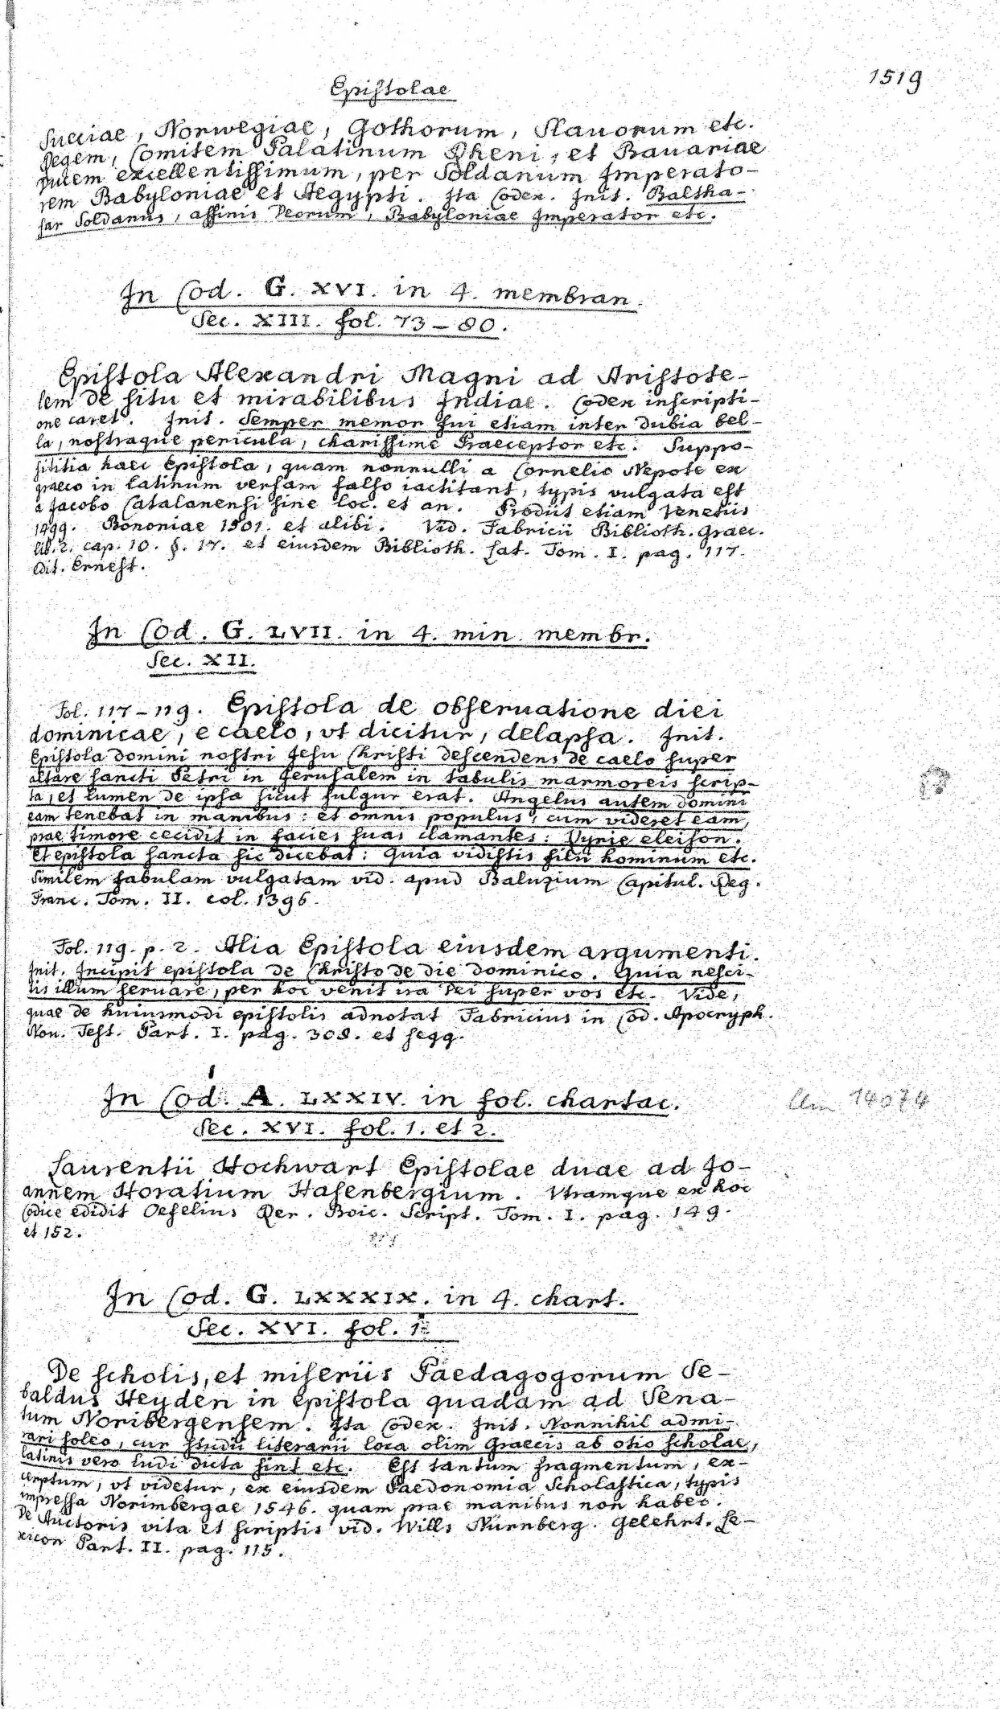 1519
Epistolae
Sueciae, Norwegiae, Gothorum, Slauorum etc.
Regem, Comitem Palatinum Rheni, et Bauariae
Ducem excellentissimum, per Soldanum Imperato-
rem Babyloniae et Aegypti. Ita Codex. Init. Baltha-
sar Soldanus, affinis Deorum, Babyloniae Imperator etc.
In Cod. G. XVI. in 4. membran.
Sec. XIII. fol. 73-80.
Epistola Alexandri Magni ad Aristote-
lem de situ et mirabilibus Indiae. Codex inscripti-
one caret. Init. Semper memor sui etiam inter dubia bel-
la, nostraque pericula, charissime Praeceptor etc. Suppo-
sititia haec Epistola, quam nonnulli a Cornelio Nepote ex
graeco in latinum versam falso iactitant, typis vulgata est
a Jacobo Catalanensi sine loc. et an. Prodiit etiam Venetiis
1499. Bononiae 1501. et alibi. Vid. Fabricii Biblioth. Graec.
lib. 2. cap. 10. §. 17. et eiusdem Biblioth. Lat. Tom. I. pag. 117.
edit. Ernest.
In Cod. G. LVII. in 4. min. membr.
Sec. XII.
Fol. 117-119. Epistola de obseruatione diei
dominicae, e caelo, vt dicitur, delapsa. Init.
Epistola domini nostri Jesu Christi descendens de caelo super
altare sancti Petri in Jerusalem in tabulis marmoreis scrip-
ta, et lumen de ipsa sicut fulgur erat. Angelus autem domini
eam tenebat in manibus: et omnis populus, cum videret eam,
prae timore cecidit in facies suas clamantes: Kyrie eleison.
Et epistola sancta sic dicebat: Quia vidistis filii hominum etc.
Similem fabulam vulgatam vid. apud Baluzium Capitul. Reg.
Franc. Tom. II. col. 1396.
Fol. 119. p. 2. Alia Epistola eiusdem argumenti.
Init. Incipit epistola de Christo de die dominico. Quia nesci-
tis illum seruare, per hoc venit ira Dei super vos etc. Vide,
quae de huiusmodi epistolis adnotat Fabricius in Cod. Apocryph.
Nou. Test. Part. I. pag. 308. et seqq.
In Cod. A. LXXIV. in fol. chartac. Clm 14074
Sec. XVI. fol. 1. et 2.
Laurentii Hochwart Epistolae duae ad Jo-
annem Horatium Hasenbergium. Vtramque ex hoc
Codice edidit Oefelius Rer. Boic. Script. Tom. I. pag. 149.
et 152.
In Cod. G. LXXXIX. in 4. chart.
Sec. XVI. fol. 1.
De scholis, et miseriis Paedagogorum Se-
baldus Heyden in epistola quadam ad Sena-
tum Noribergensem. Ita Codex. Init. Nonnihil admi-
rari soleo, cur studii literarii loca olim Graecis ab otio scholae,
latinis vero ludi dicta sint etc. Est tantum fragmentum, ex-
cerptum, vt videtur, ex eiusdem Paedonomia Scholastica, typis
impressa Norimbergae 1546. quam prae manibus non habeo.
De Auctoris vita et scriptis vid. Wills Nürnberg. Gelehrt. Le-
xicon Part. II. pag. 115.